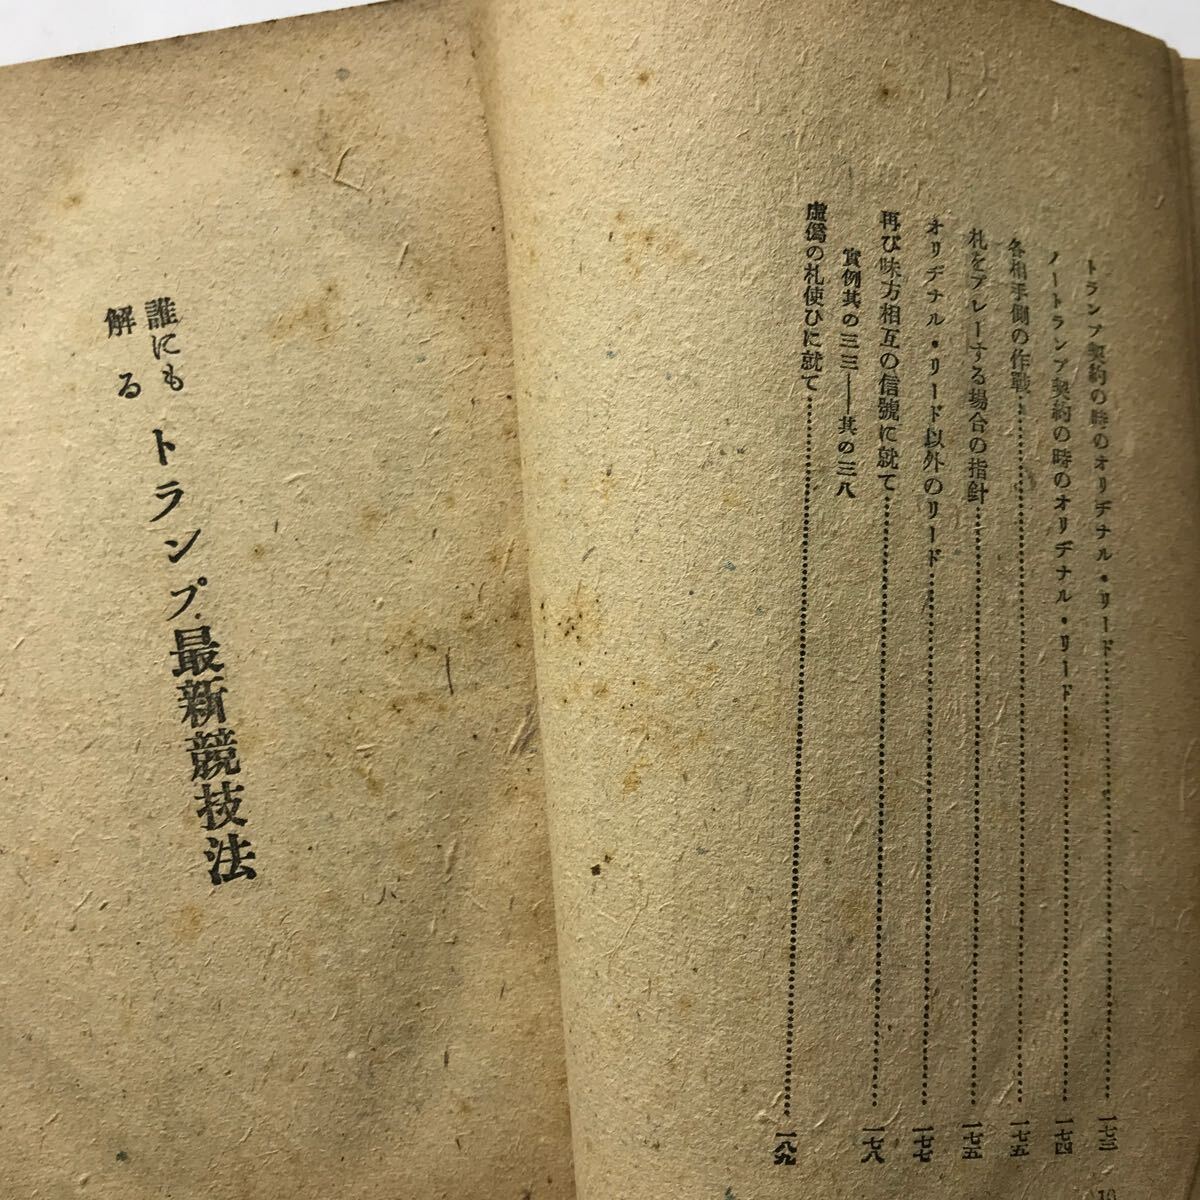 トランプ契約の時のオリヂナル・リード……一七三
ノートランプ契約の時のオリヂナル・リード……一七四
各相手側の作戰……一七五
札をプレーする場合の指針……一七五
オリヂナル・リード以外のリード……一七七
再び味方相互の信號に就て……一七八
實例其の三三——其の三八
虛僞の札使ひに就て……一八九
10
誰にも
解る
トランプ最新競技法